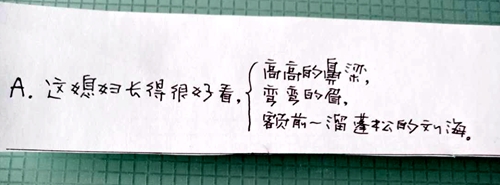 A. 这媳妇长得很好看,
高高的鼻梁,
弯弯的眉,
额前一溜蓬松的刘海。